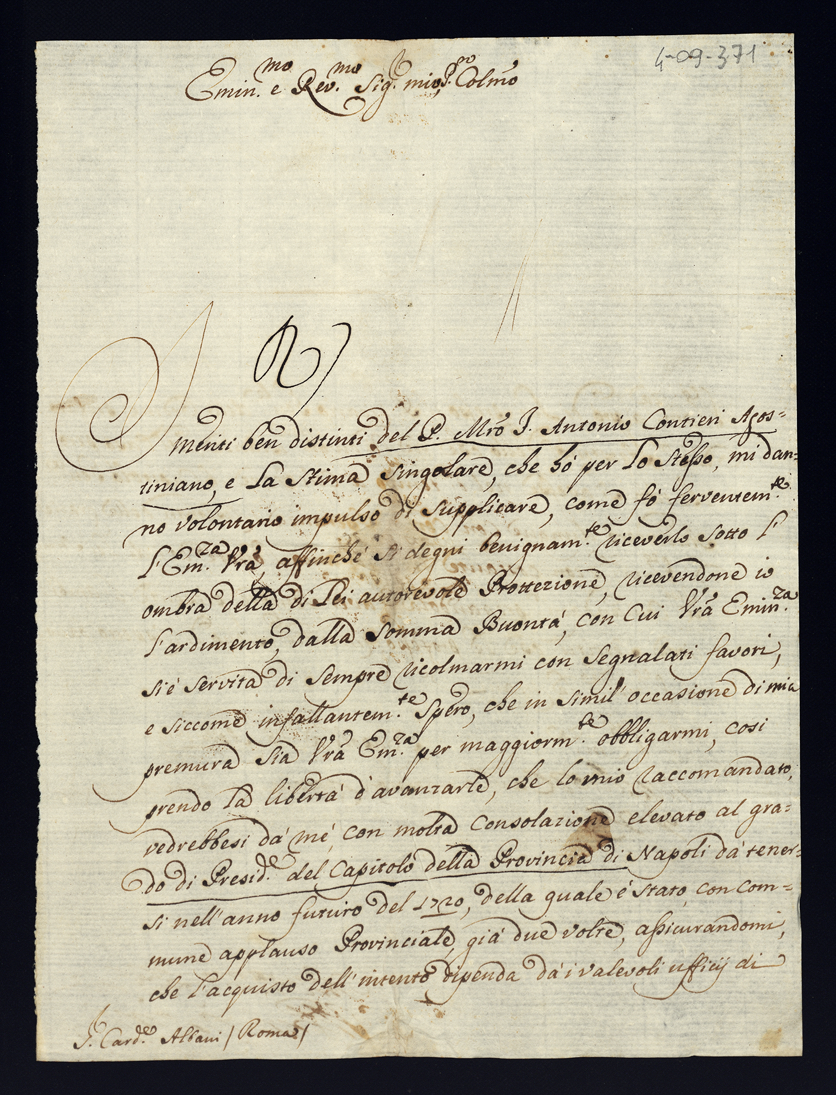 4-09-371
Emin.mo e Rev.mo Sig.r mio, P.ron Colmo
I meriti ben distinti del P. Mro F. Antonio Contieri Agos=
tiniano, e la stima singolare, che hó per lo stesso, mi dan=
no volontario impulso di supplicare, come fó ferventem.te
l'Em.za Vrã affinché si degni benignam.te riceverlo sotto l'
ombra della di Lei autorevole Protezione, ricevendone io
l'ardimento, dalla somma Buontá, con cui Vrã Emin.za
si é servita di sempre ricolmarmi con segnalati favori,
e siccome infallantem.te spero, che in simil' occasione di mia
premura sia Vrã Em.za per maggiorm.te obbligarmi, cosi
prendo la libertá d'avanzarle, che lo mio raccomandato,
vedrebbesi da' mé, con molta consolazione elevato al gra=
do di Presid.e del Capitolo della Provincia di Napoli da tener=
si nell'anno futuro del 1720, della quale é stato, con com=
mune applauso Provinciale, giá due volte, assicurandomi,
che l'acquisto dell'intento dipenda da' i valevoli ufficij di
S. Card.e Albani / Roma /